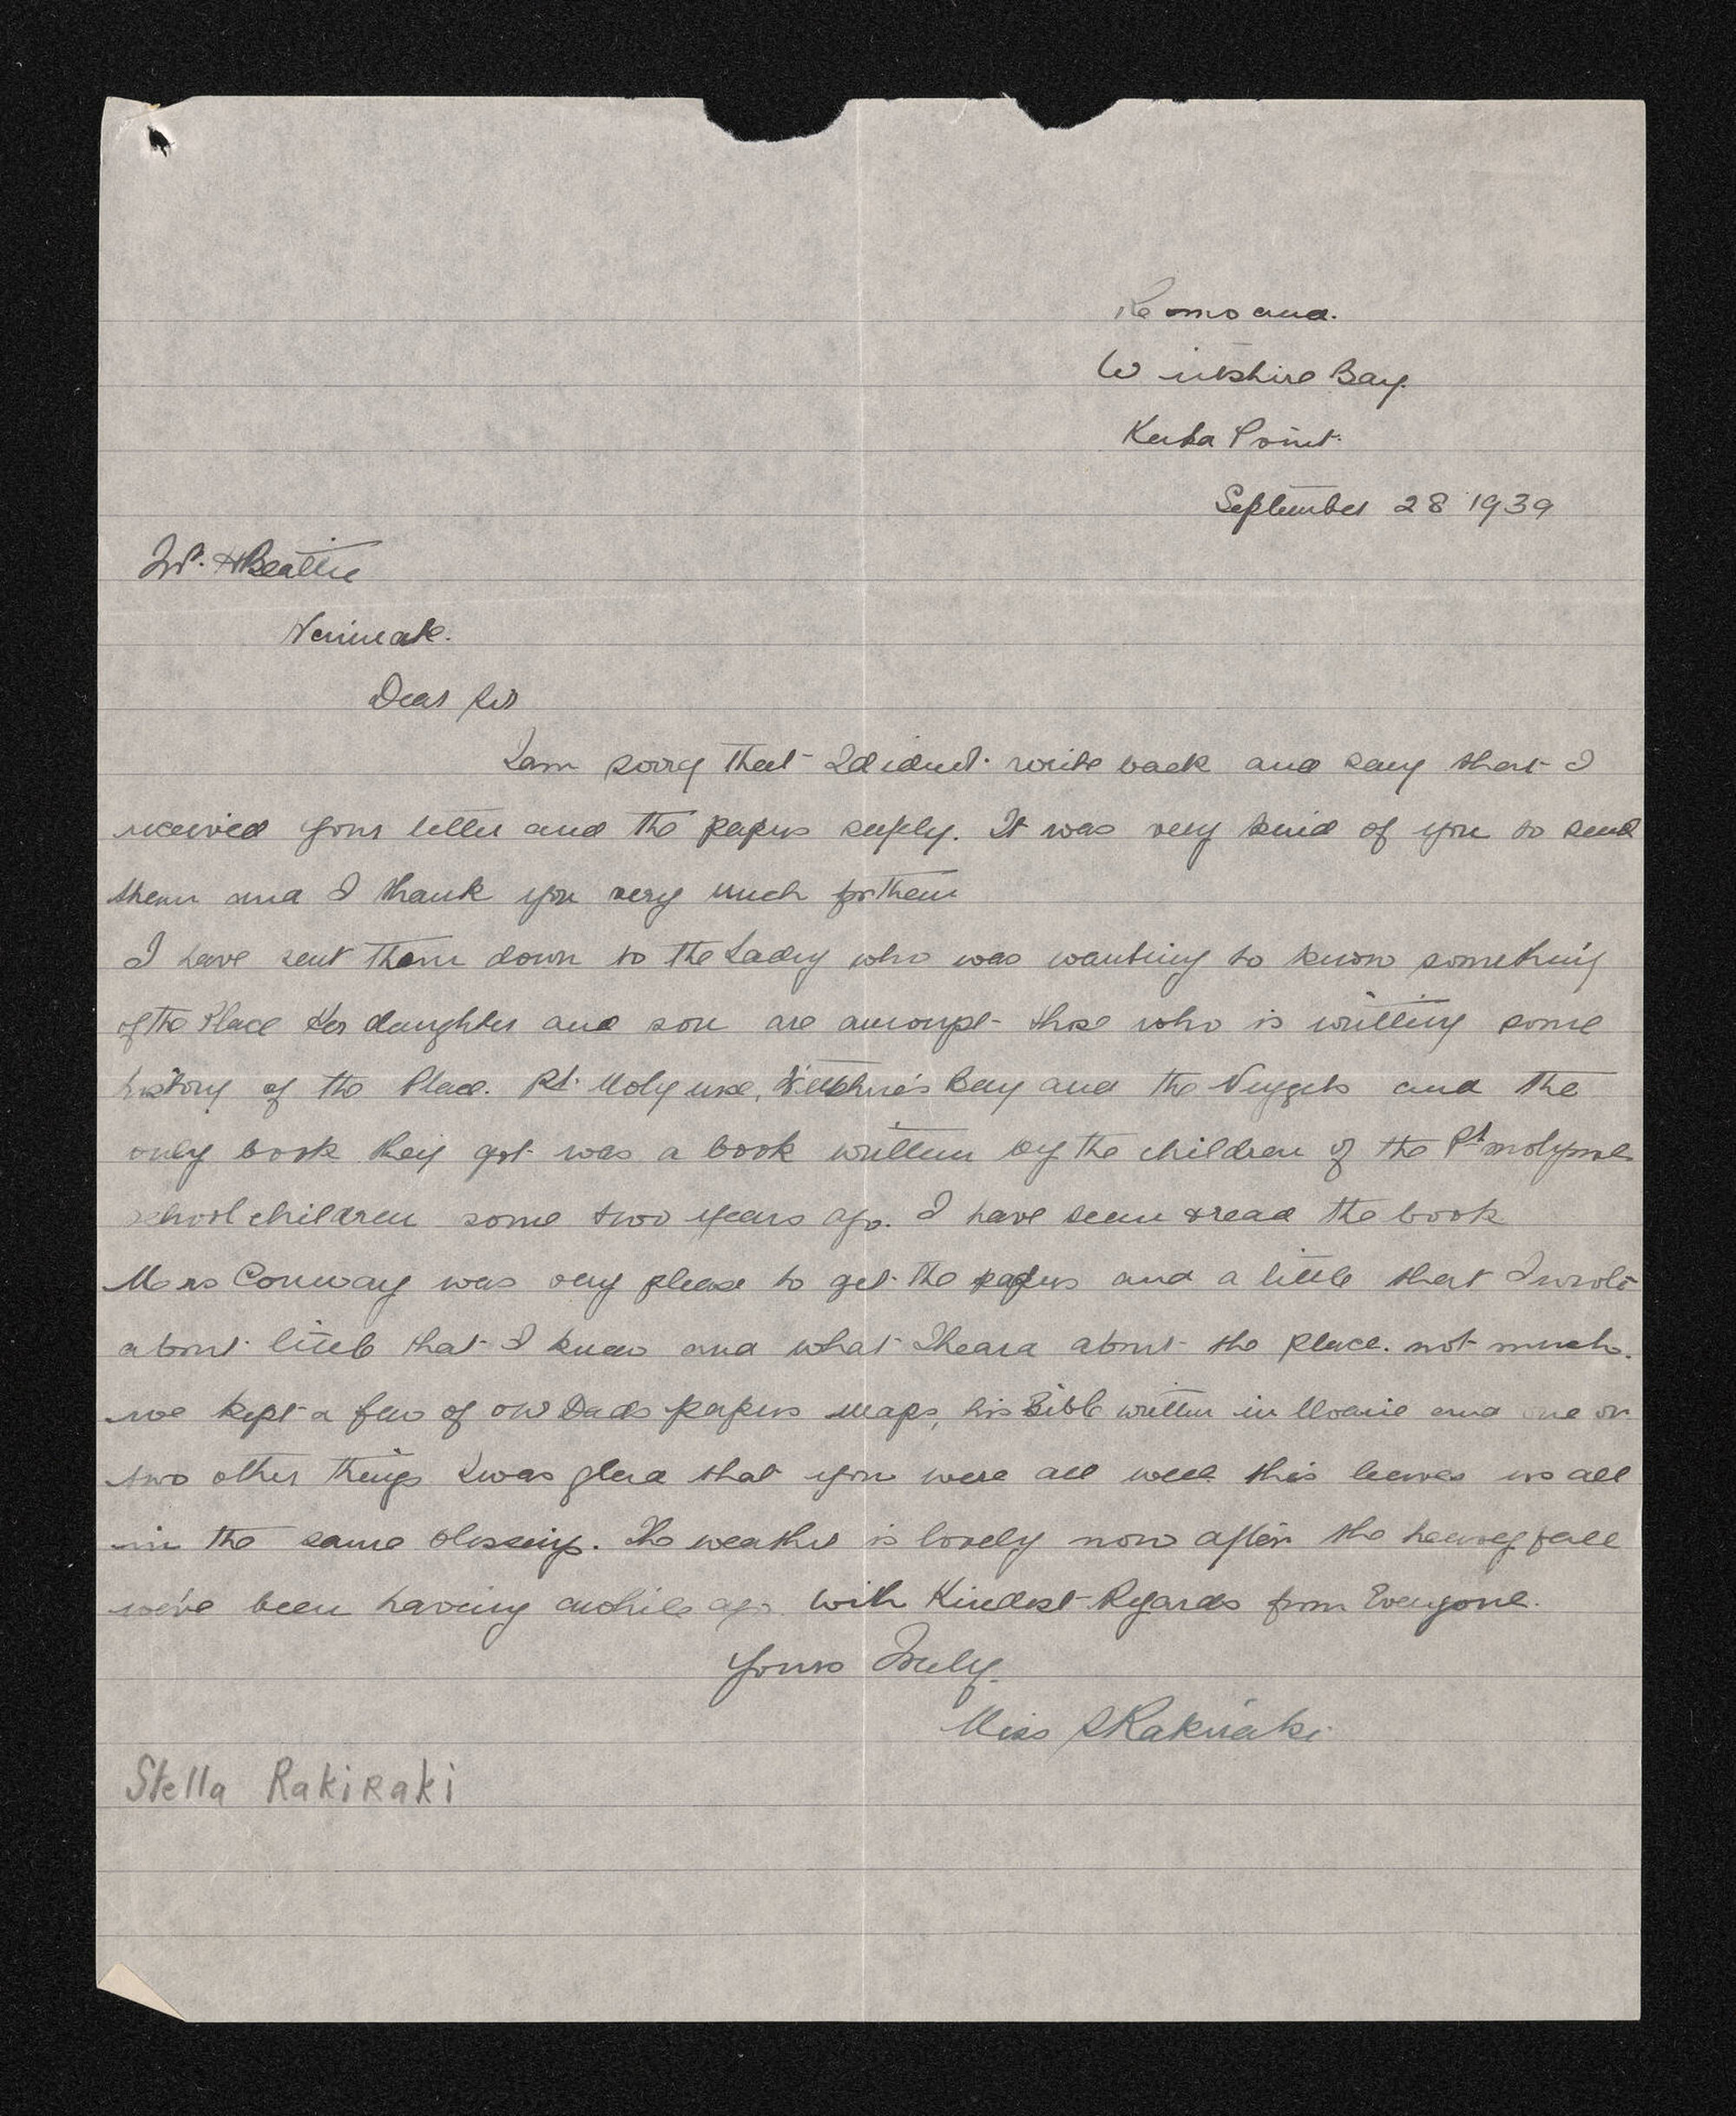 Romoana.
Wiltshire Bay.
Kaka Point.
September 28 1939
Mr. H Beattie
Dear Sir
I am sorry that I didn't write back and say that I
received your letter and the papers safely. It was very kind of you to send
them and I thank you very much for them
I have sent them down to the Lady who was wanting to know something
of the Place Her daughter and son are amongst those who is writting some
history of the Place. Pt. Molyneux, Wiltshires Bay and the Nuggets and the
only book they got was a book written by the children of the Pt molyneux
school children some two years ago. I have seen & read the book
Mrs Conway was very please to get the papers and a little that I wrote
about little that I knew and what I heard about the place. not much.
we kept a few of our Dads papers maps, his Bible written in Moarie and one or
two other things I was glad that you were all well this leaves us all
in the same blessing. The weather is lovely now after the heavy fall
we've been having awhile ago with Kindest Regards from Everyone.
Yours Truly.
Miss S Rakiraki
Stella Rakiraki